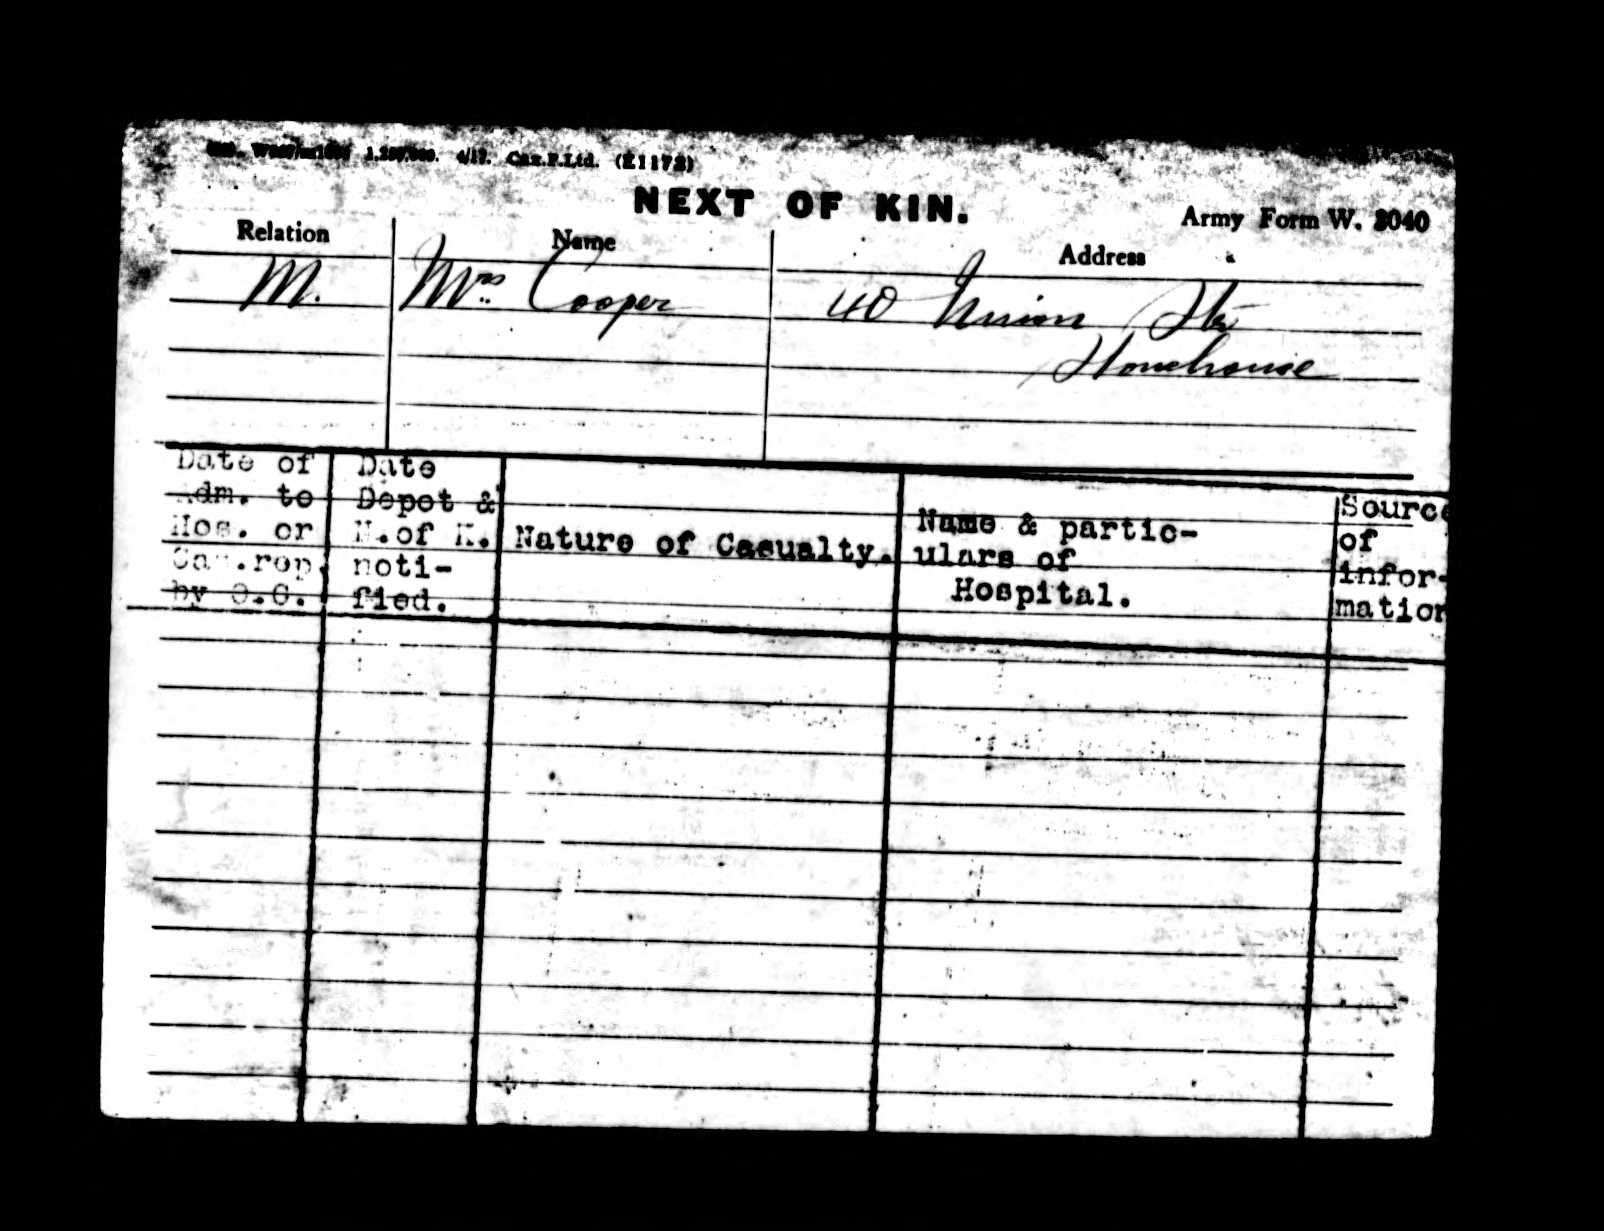 1,250,000. 4/17. Cax.P.Ltd. (E1172)
NEXT OF KIN.
Army Form W. 3040
Relation Name Address
M. Mrs Cooper 40 Union Str
Stonehouse
Date of
Adm. to
Hos. or
Cas.rep.
by O.C.
Date
Depot &
N.of K.
noti-
fied.
Nature of Casualty.
Name & partic-
ulars of
Hospital.
Source
of
infor-
mation